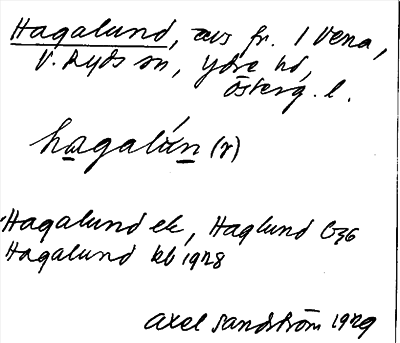 Hagalund, avs fr. 1 Vena,
V. Ryds sn, Ydre hd,
Österg. l.
hagalún (r)
Hagalund ek, Haglund G36
Hagalund kb 1928
Axel Sandström 1929